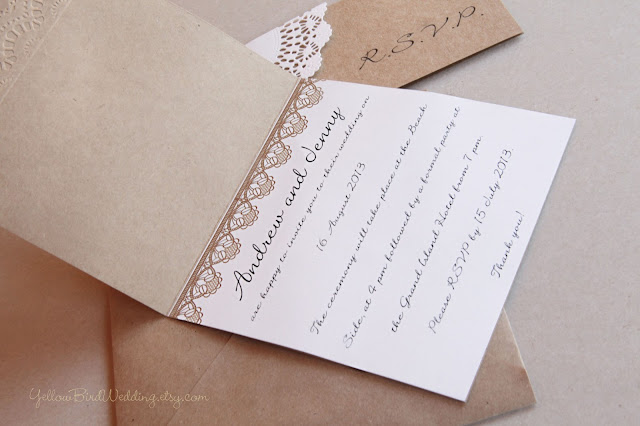 R.S.V.P.
Andrew and Jenny
are happy to invite you to their wedding on
16 August 2013
The ceremony will take place at the Beach
Side, at 4 pm followed by a formal party at
the Grand Island Hotel from 7 pm.
Please RSVP by 15 July 2013.
Thank you!
YellowBirdWedding.etsy.com